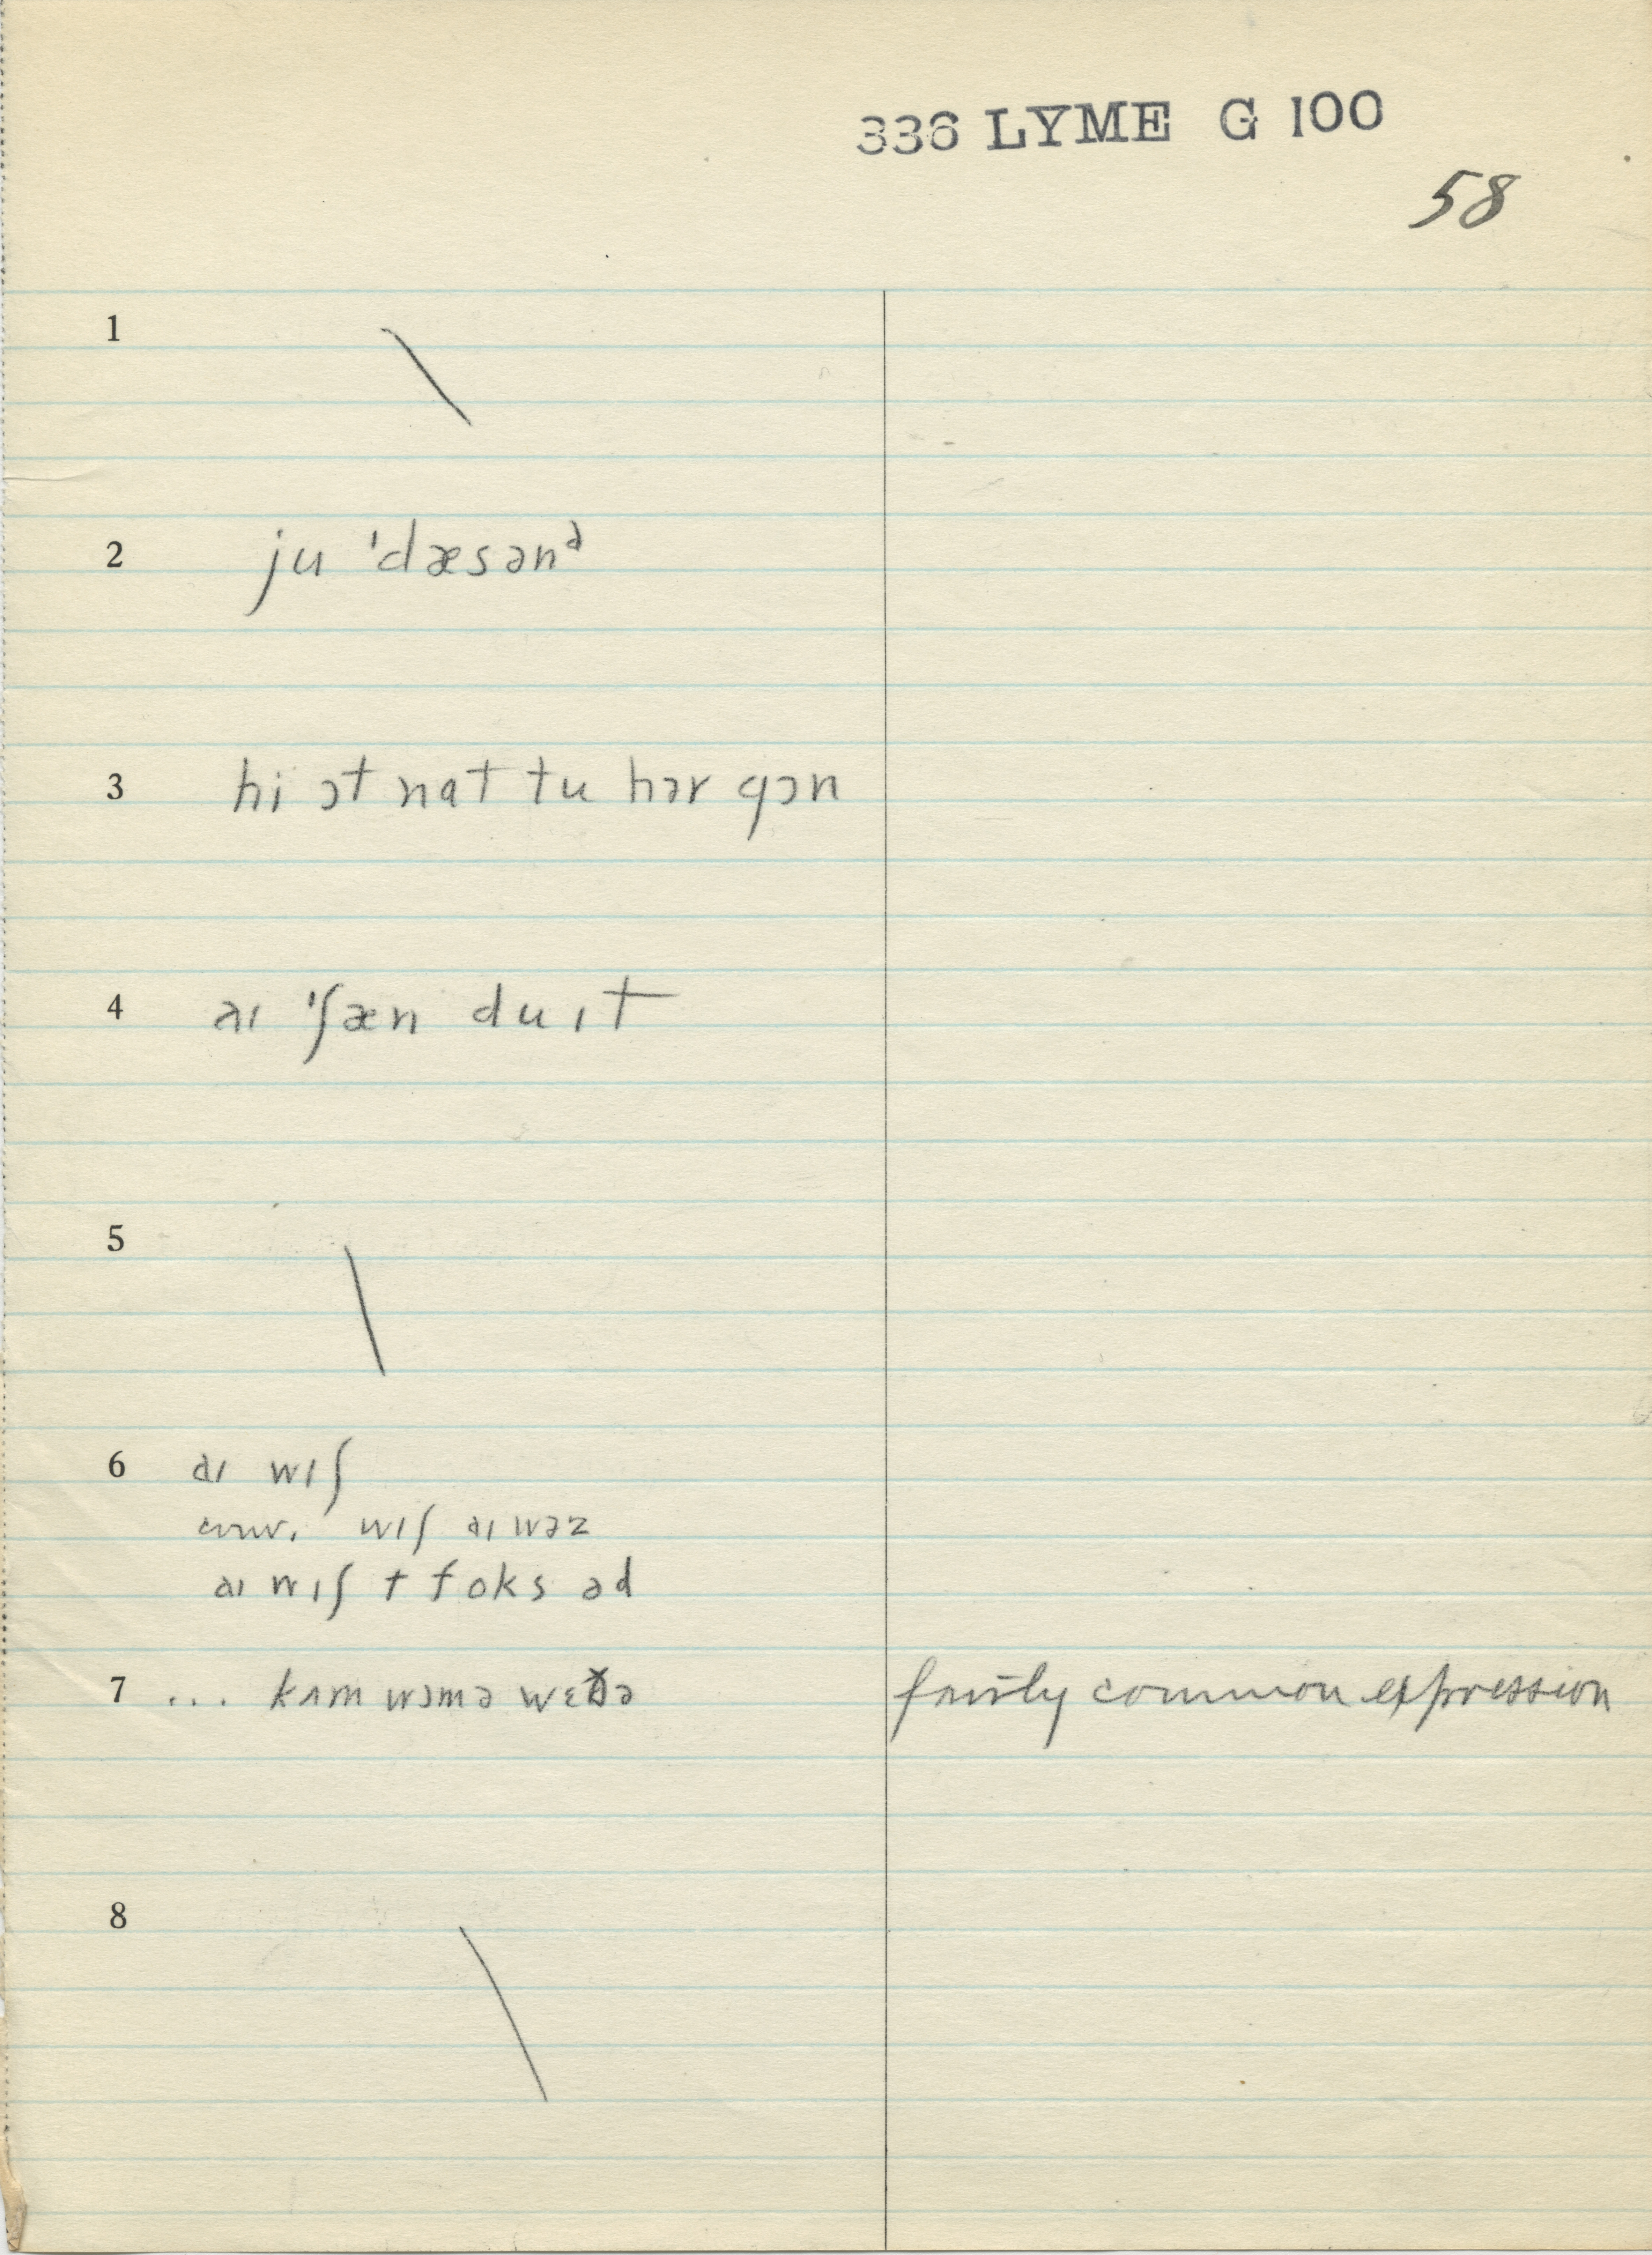 336 LYME G 100
58
1
2 ju ˈdæsənᵊ
3 hi ɔt nat tu hər gɔn
4 aɪ ˈʃæn du ɪt
5
6 aɪ wɪʃ
conv. wɪʃ aɪ wəz
aɪ wɪʃ t foks əd
7 ... kʌm wɔmə wɛðə fairly common expression
8